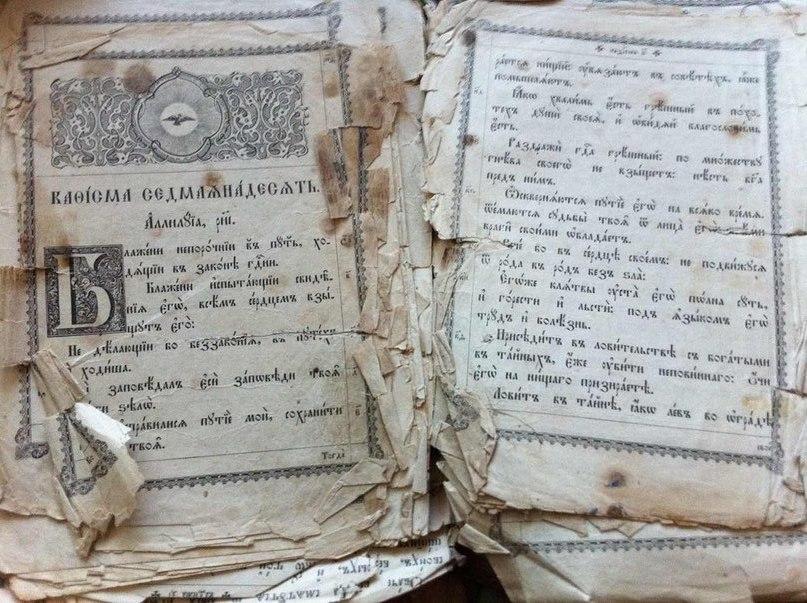 КАѲІСМА СЕДМАЯНАДЕСЯТЬ.
Аллилꙋіа, риі.
Блажени непорочніи въ пꙋть, хо-
дящіи въ законѣ гдни.
Блажени испытающіи свидѣ-
нія егѡ, всѣмъ сердцемъ взы-
щꙋтъ егѡ:
Не дѣлающіи бо беззаконія, въ пꙋтѣхъ
ходиша.
заповѣдалъ еси заповѣди твоя
ѕѣлѡ.
пꙋтіе мои, сохранити
твоя.
Тогда
рается нищій: ᲂувязаютъ въ совѣтѣхъ, ꙗже
помышляютъ.
Ꙗкѡ хвалимь есть грѣшный въ похо-
техъ дꙋши своея, и ѡбидяй благословимь
есть.
Раздражи гда грѣшный: по множествꙋ
гнѣва своегѡ не взыщетъ: нѣсть бга
предъ нимъ.
Ѡскверняются пꙋтіе егѡ на всяко время.
ѿемлются сꙋдьбы твоя ѿ лица егѡ: всѣми
враги своими ѡбладаетъ.
бо въ сердцѣ своемъ: не подвижꙋся
ѿ рода въ родъ безъ ѕла:
Егѡже клятвы ᲂуста егѡ полна сꙋть,
и горести и льсти: подъ языкомъ егѡ
трꙋдъ и болѣзнь.
Присѣдитъ въ ловительствѣ съ богатыми
въ тайныхъ, еже ᲂубити неповиннаго: ᲂучи
егѡ на нищаго призираетѣ.
Ловитъ въ тайнѣ, ꙗкѡ левъ во ѡградѣ